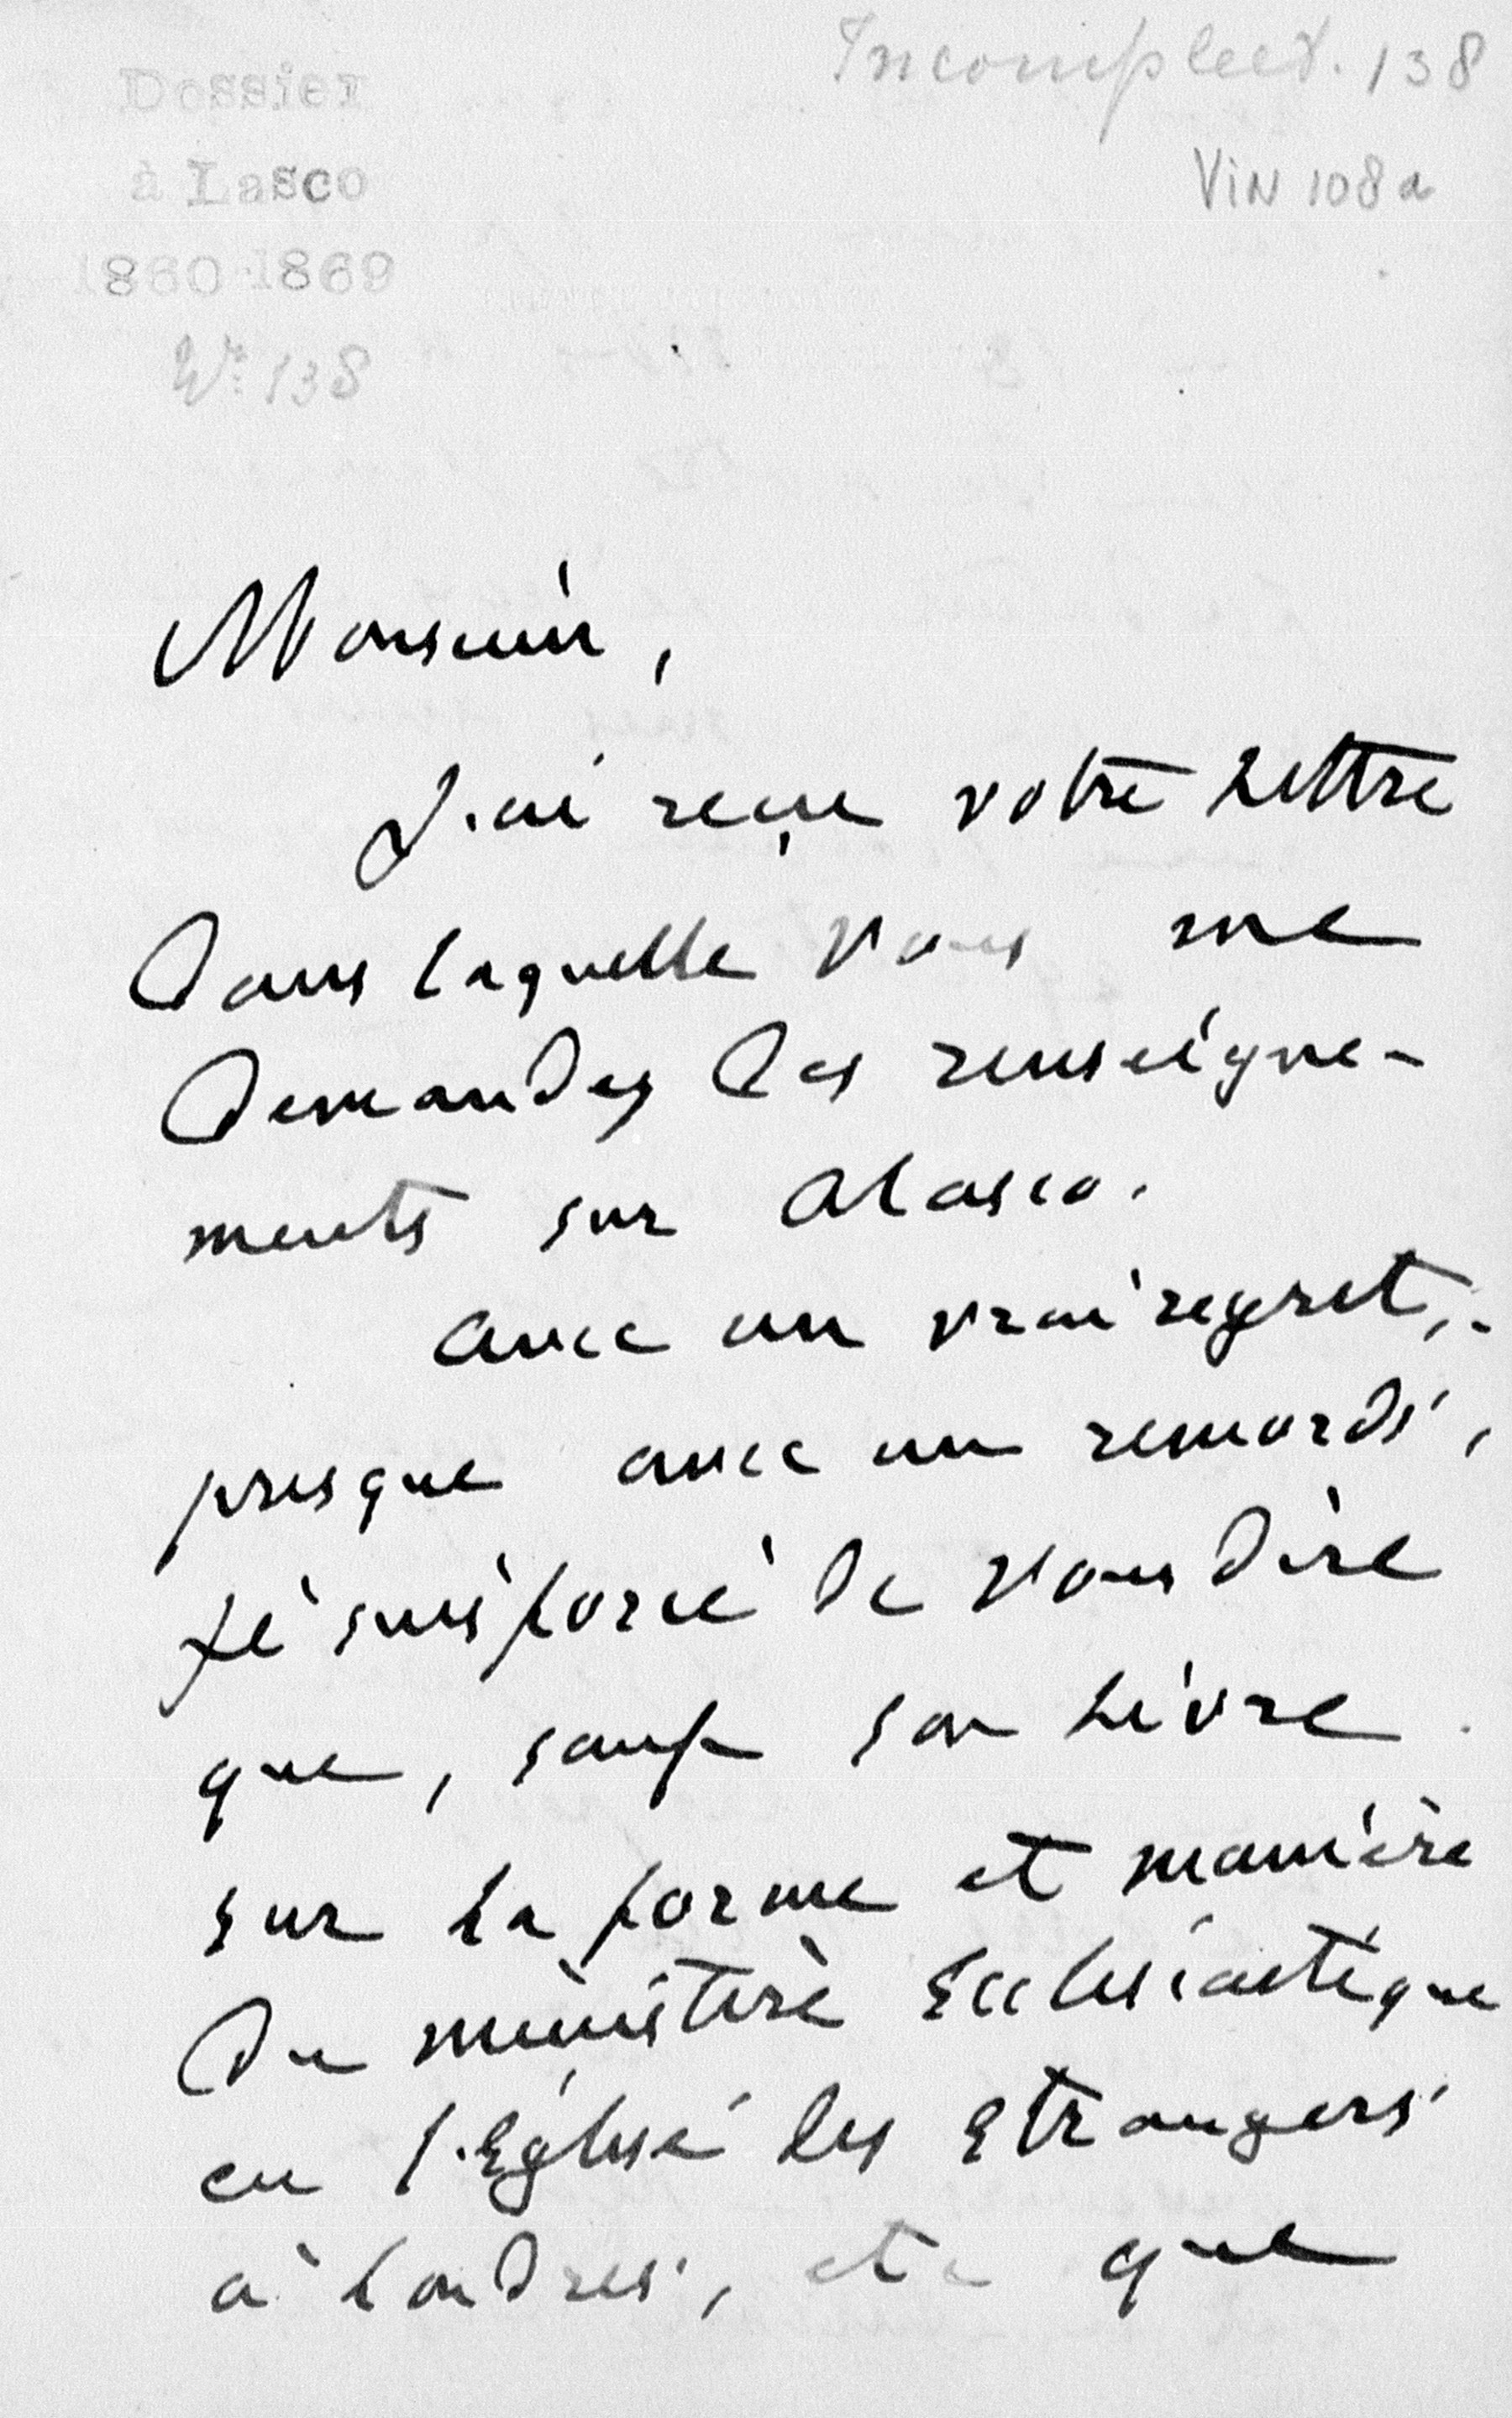 Incompleet. 138
Dossier
à Lasco
VIN 108a
1860-1869
No 138
Monsieur,
J'ai reçu votre lettre
dans laquelle vous me
demandez des renseigne-
ments sur alasco.
avec un vrai regret,
presque avec un remords,
je suis forcé de vous dire
que, sauf son livre
sur la forme et manière
du ministère Ecclesiastique
en l'Eglise des Etrangers
à Londres, et que